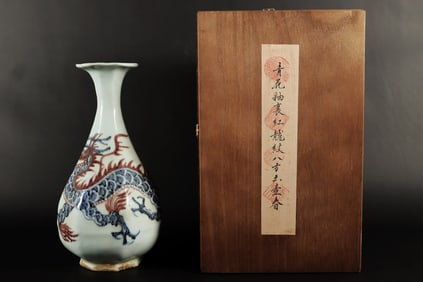 青花釉裏红龍紋八方玉壶春